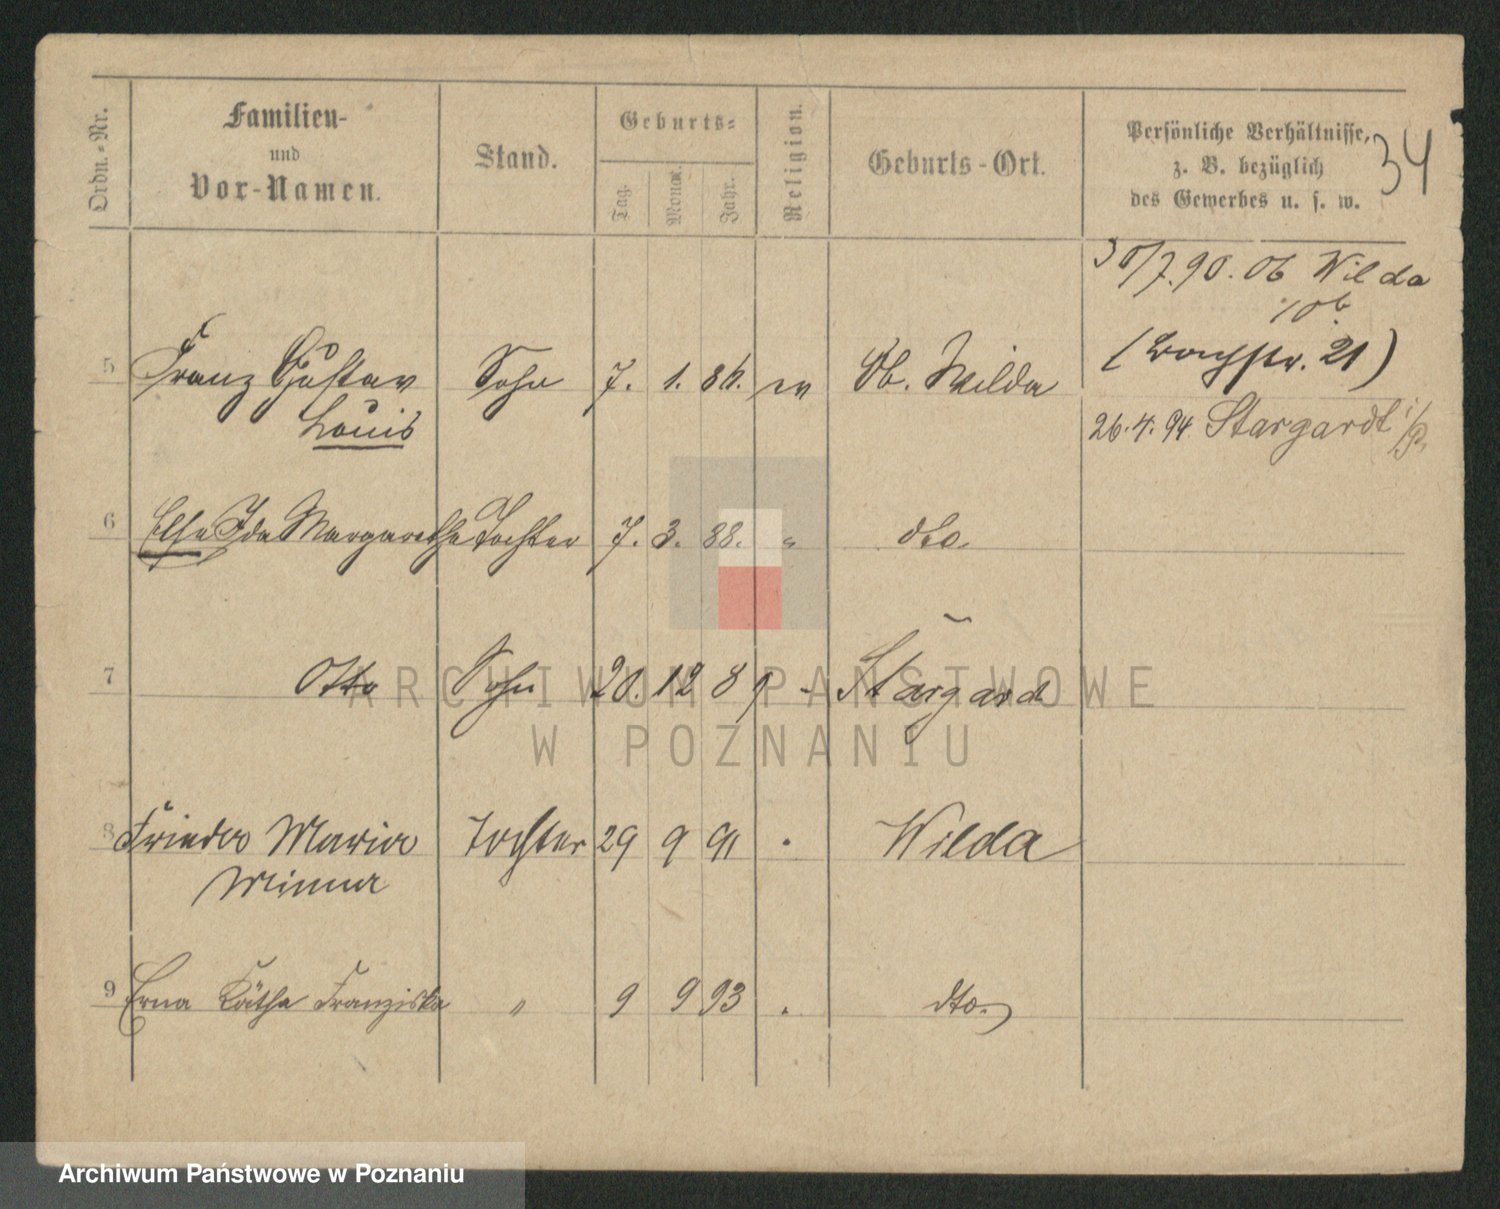 Ordn.-Nr.
Familien-
und
Vor-Namen.
Stand.
Geburts-
Tag.
Monat.
Jahr.
Religion.
Geburts-Ort.
Persönliche Verhältnisse,
z. B. bezüglich
des Gewerbes u. s. w.
34
30/7.90. Ob Wilda
106
21)
5 Franz Gustav Sohn 7. 1. 86. ev Ob. Wilda
Louis
26.4.94 Stargardt i/P.
6 Else Ida Margarethe Tochter 7. 3. 88. " dto.
7 Otto Sohn 20. 12 89 - Stargard
8 Frieda Maria Tochter 29 9 91 . Wilda
Minna
9 Erna Käthe Franziska " 9 9 93 . dto.
ARCHIWUM PAŃSTWOWE
W POZNANIU
Archiwum Państwowe w Poznaniu